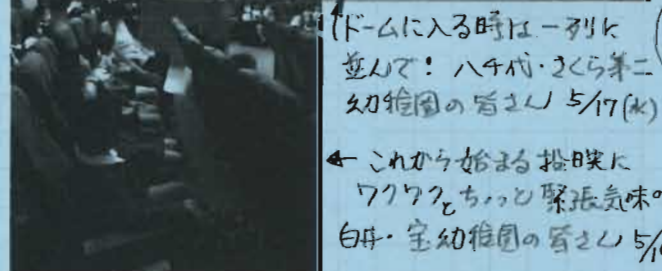 ↑ドームに入る時は一列に
並んで! 八千代・さくら第二
幼稚園の皆さん 5/17(水)
← これから始まる投映に
ワクワクとちょっと緊張気味の
白井・宝幼稚園の皆さん